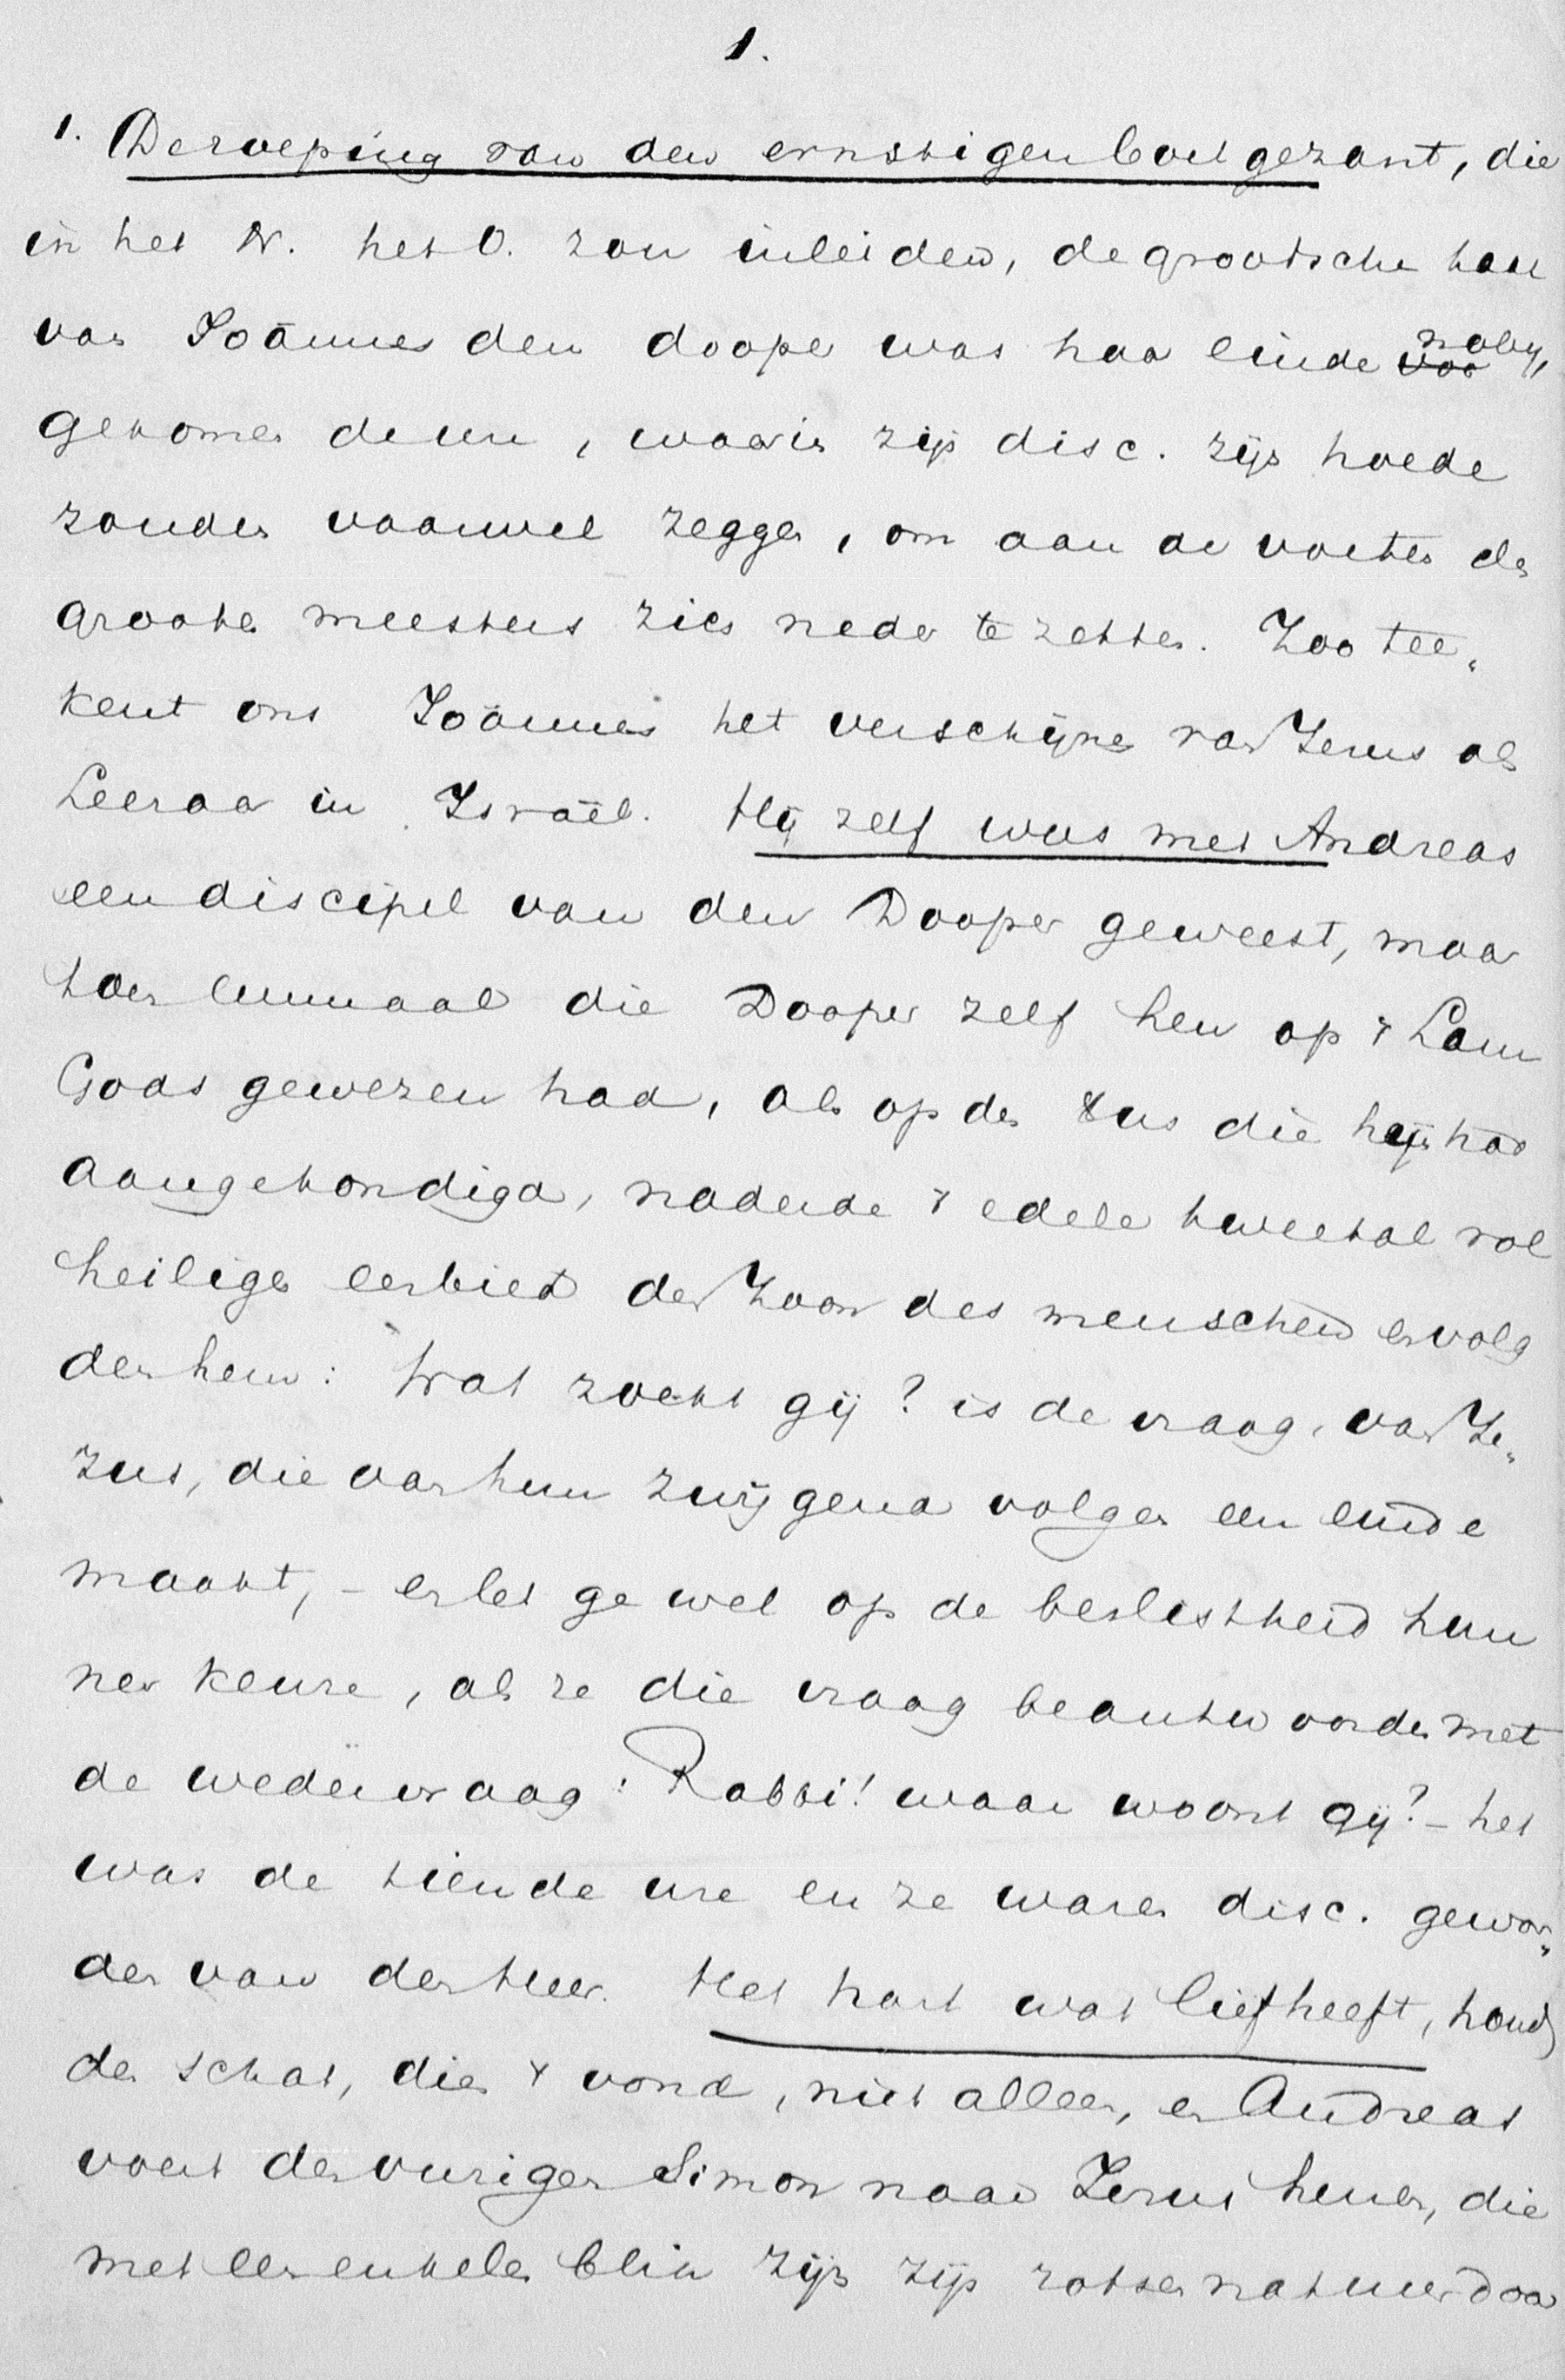 1.
1. De roeping van den ernstigen boetgezant, die
in het N. het O. zou inleiden, de grootsche taak
van Joännes den dooper was haar einde naby,
gekomen de ure, waarin zijn disc. zijn hoede
zouden vaarwel zeggen, om aan de voeten des
grooten meesters zich neder te zetten. Zoo tee„
kent ons Joännes het verschijnen van Jezus als
Leeraar in Israël. Hij zelf was met Andreas
een discipel van den Dooper geweest, maar
toen eenmaal die Dooper zelf hen op 't Lam
Gods gewezen had, als op den die hij had
aangekondigd, naderde 't edele tweetal vol
heiligen eerbied den Zoon des menschen en volg
den hem: Wat zoekt gij? is de vraag, van Je„
zus, die van hun zwijgend volgen een einde
maakt, – en let ge wel op de beslistheid hun
ner keuze, als ze die vraag beantwoorden met
de wedervraag: Rabbi! waar woont gij? – het
was de tiende ure en ze waren disc. gewor„
den van den Heer. Het hart wat liefheeft, houdt
den schat, dien 't vond, niet alleen, en Andreas
voert den vurigen Simon naar Jezus henen, die
met een enkelen blik zijn rotsennatuur door